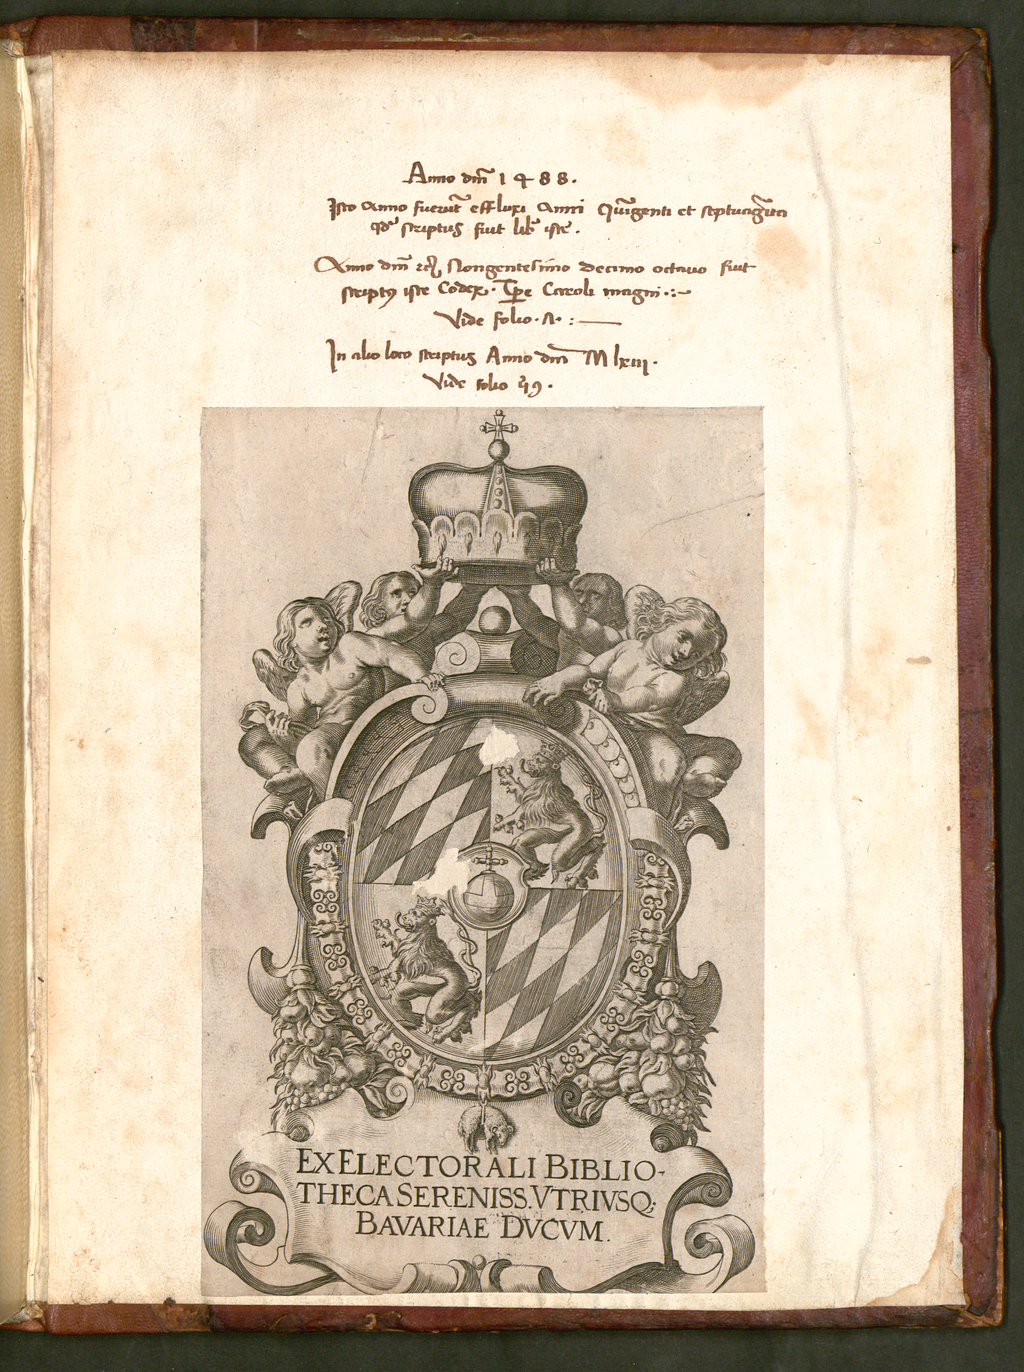 Anno dm̄ 1488.
Isto Anno fuerūt effluxi Anni Quīgenti et septuagīta
qd̓ scriptus fuit lib̓ iste.
Anno dm̄ Nongentesimo decimo octavo fuit
scriptꝰ iste Codex. Tp̄e Caroli magni
Vide folio
In alio loco scriptus Anno dm̄ Mlxiii.
Vide folio
EX ELECTORALI BIBLIO-
THECA SERENISS. VTRIVSQ;
BAVARIAE DVCVM.